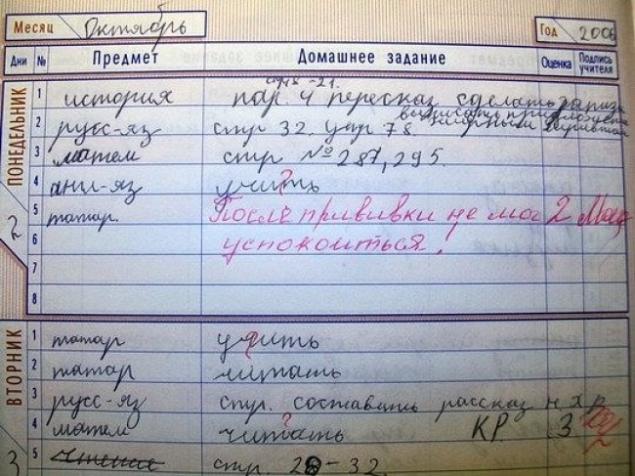 Месяц Октябрь Год 2006
Дни № Предмет Домашнее задание Оценка Подпись учителя
ПОНЕДЕЛЬНИК 2
стр 18-21.
1 история пар. 4 пересказ сделать записи
2 русс-яз стр 32. упр 78
3 матем стр №287,295
4 англ-яз учить
5 татар. После прививки не мог 2
6 успокоиться!
7
8
ВТОРНИК 3
1 татар учить
2 татар читать
3 русс-яз стр. составить рассказ
4 матем читать ? КР 3
5 чтение стр. 28-32